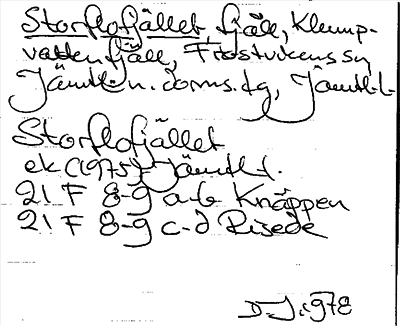 Storflofjället, fjäll, Klump-
vattenfjäll, Frostvikens sn
Jämtl. n. doms. dg, Jämtl. l.
Storflofjället
ek (1975) Jämtl. l.
21 F 8-9 a-b Knäppen
21 F 8-9 c-d Risede
D. J. 1978